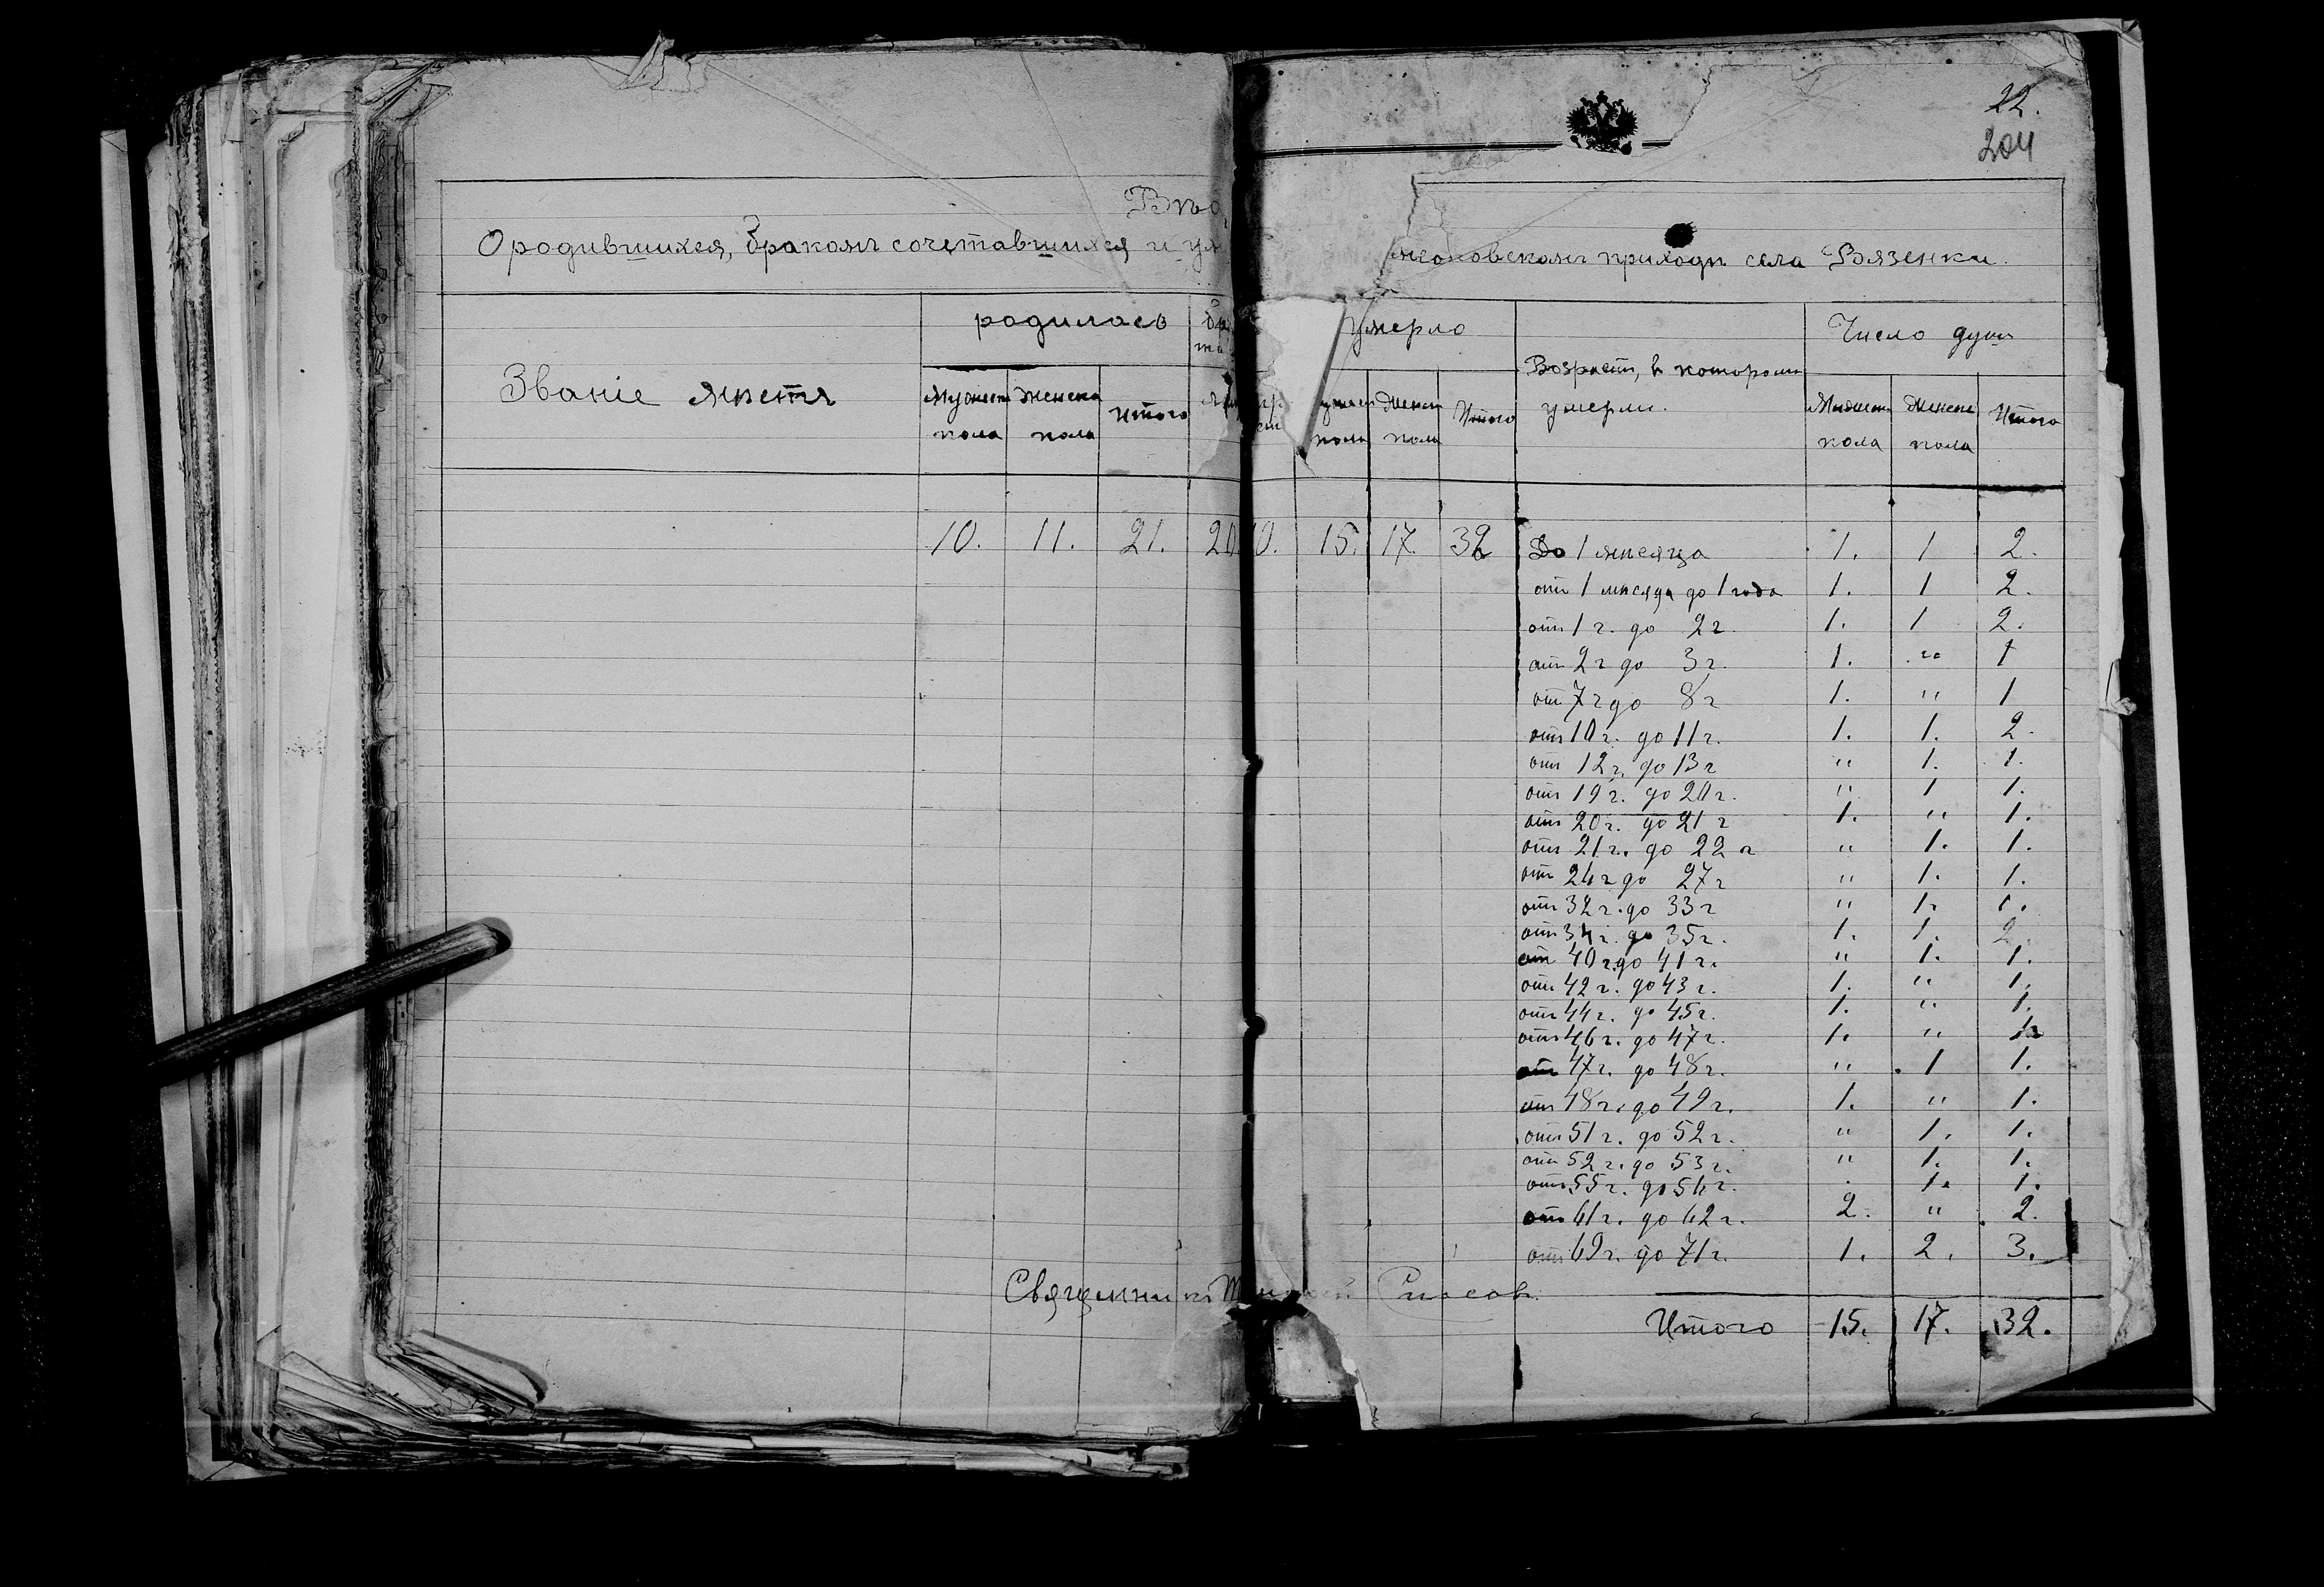 22.
204
Вѣд
О родившихся, бракомъ сочетавшихся и ум
приходѣ села Вязенки.
Званіе мѣстъ
родилось
умерло
Возрастъ, въ которомъ умерли.
Число душъ
Мужеск пола
Женска пола
Итого
Женск пола
Итого
Мужеск пола
Женск пола
Итого
10. 11. 21. 20 15. 17. 32
До 1 мѣсяца 1. 1 2.
отъ 1 мѣсяца до 1 года 1. 1 2.
отъ 1 г. до 2 г. 1. 1 2.
отъ 2 г до 3 г. 1. " 1
отъ 7 г до 8 г 1. " 1
отъ 10 г. до 11 г. 1. 1. 2.
отъ 12 г. до 13 г " 1. 1.
отъ 19 г. до 20 г. " 1 1.
отъ 20 г. до 21 г 1. " 1.
отъ 21 г. до 22 г " 1. 1.
отъ 26 г до 27 г " 1. 1.
отъ 32 г. до 33 г " 1. 1.
отъ 34 г. до 35 г. 1. 1. 2.
отъ 40 г. до 41 г. " 1. 1.
отъ 42 г. до 43 г. 1. " 1.
отъ 44 г. до 45 г. 1. " 1.
отъ 46 г. до 47 г. 1. " 1.
отъ 47 г. до 48 г. " 1 1.
отъ 48 г. до 49 г. 1. " 1.
отъ 51 г. до 52 г. " 1. 1.
отъ 52 г. до 53 г. " 1. 1.
отъ 55 г. до 56 г. 1. 1.
отъ 61 г. до 62 г. 2. " 2.
отъ 69 г. до 71 г. 1. 2. 3.
Священникъ
Итого 15. 17. 32.